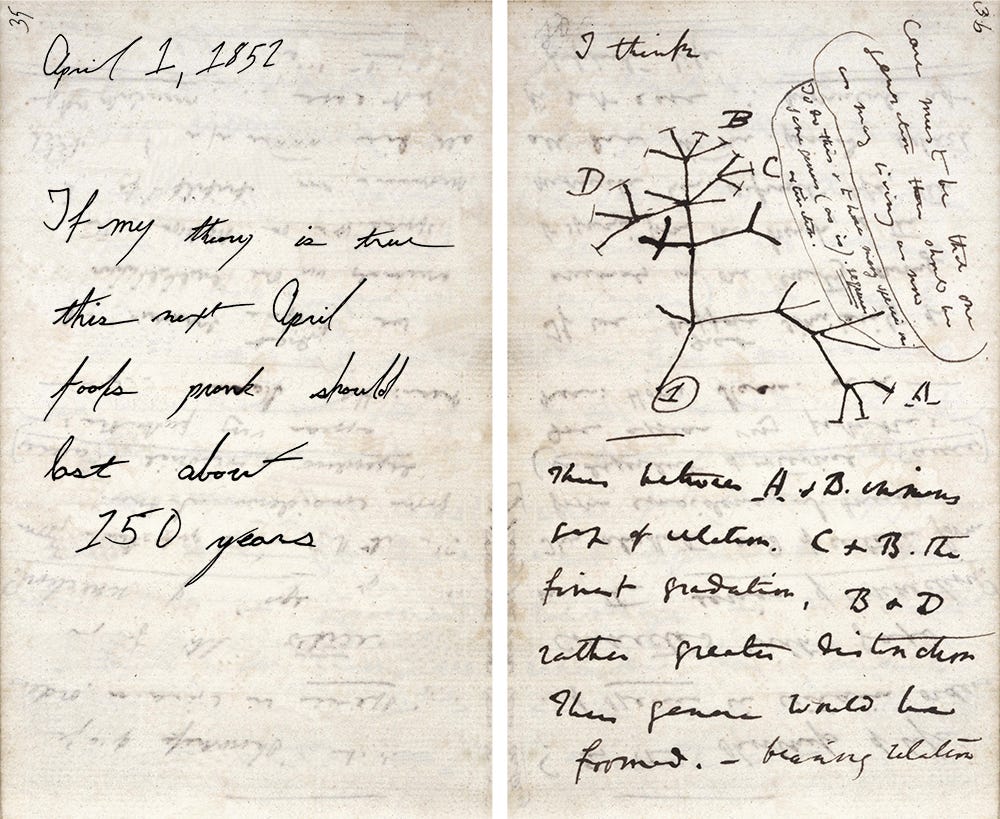 35
April 1, 1852
If my theory is true
this next April
fools prank should
last about
150 years
36
I think
Case must be that one
generation then should be
as many living as now
To do this & to have many species in
same genus (as is) requires
extinction.
B
C
D
A
1
Thus between A & B. immense
gap of relation. C & B. the
finest gradation, B & D
rather greater distinction
Thus genera would be
formed. — bearing relation